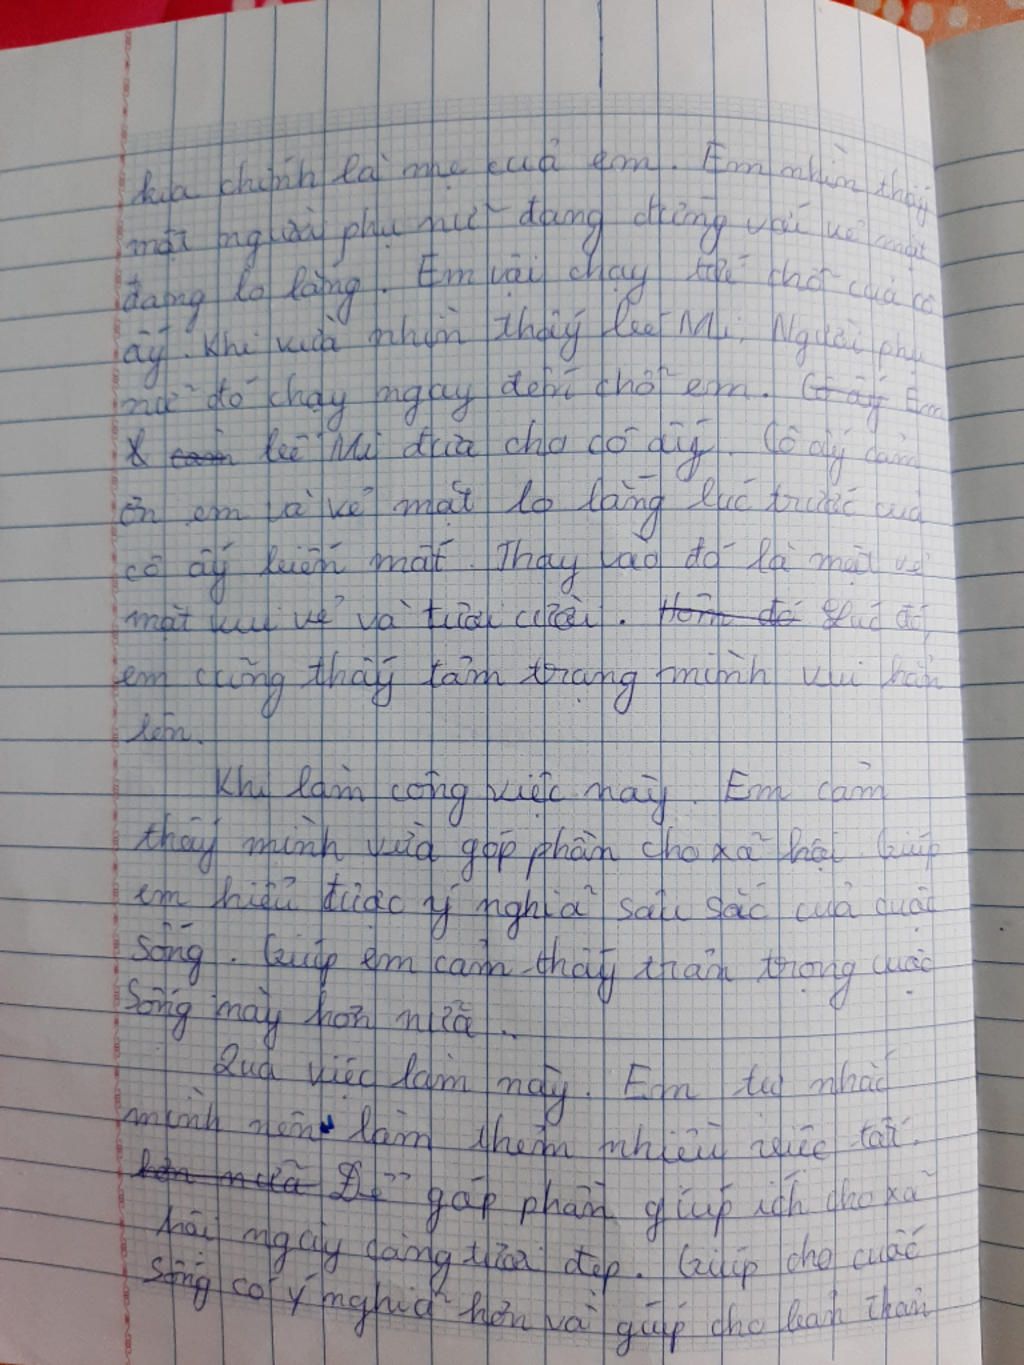 kia chính là mẹ của em. Em nhìn thấy
một người phụ nữ đang đứng với vẻ mặt
đang lo lắng. Em vội chạy tới chỗ của cô
ấy. Khi vừa nhìn thấy bé Mi. Người phụ
nữ đó chạy ngay đến chỗ em. Cô ấy Em
bé Mi đưa cho cô ấy. Cô ấy cảm
ơn em và vẻ mặt lo lắng lúc trước của
cô ấy biến mất. Thay vào đó là một vẻ
mặt vui vẻ và tươi cười. Hôm đó Lúc đó,
em cũng thấy tâm trạng mình vui hẳn
lên.
Khi làm công việc này. Em cảm
thấy mình vừa góp phần cho xã hội. Giúp
em hiểu được ý nghĩa sâu sắc của cuộc
sống. Giúp em cảm thấy trân trọng cuộc
sống này hơn nữa.
Qua việc làm này. Em tự nhắc
mình nên làm thêm nhiều việc tốt.
hơn nữa Để góp phần giúp ích cho xã
hội ngày càng tươi đẹp. Giúp cho cuộc
sống có ý nghĩa hơn và giúp cho bản thân